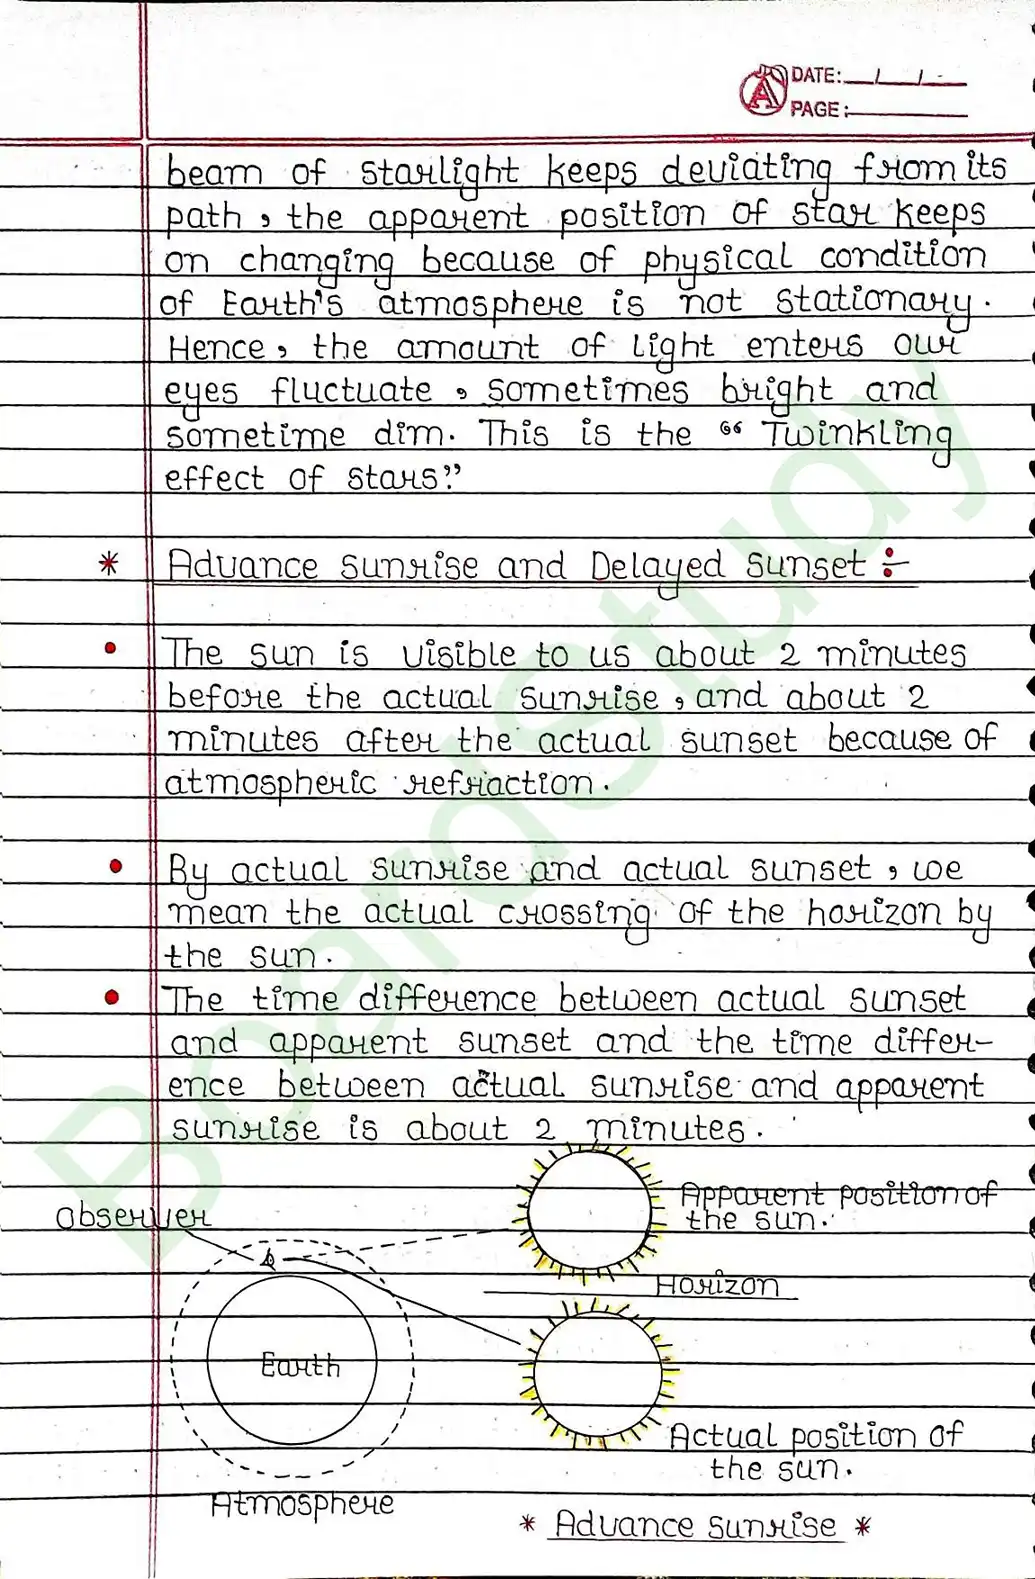 DATE: / /
PAGE:
beam of starlight keeps deviating from its
path, the apparent position of star keeps
on changing because of physical condition
of Earth's atmosphere is not stationary.
Hence, the amount of light enters our
eyes fluctuate, sometimes bright and
sometime dim. This is the “Twinkling
effect of stars”
* Advance Sunrise and Delayed Sunset :-
• The sun is visible to us about 2 minutes
before the actual sunrise, and about 2
minutes after the actual sunset because of
atmospheric refraction.
• By actual sunrise and actual sunset, we
mean the actual crossing of the horizon by
the sun.
• The time difference between actual sunset
and apparent sunset and the time differ-
ence between actual sunrise and apparent
sunrise is about 2 minutes.
Observer
Apparent position of
the sun.
Horizon
Earth
Actual position of
the sun.
Atmosphere
* Advance Sunrise *
BoardStudy